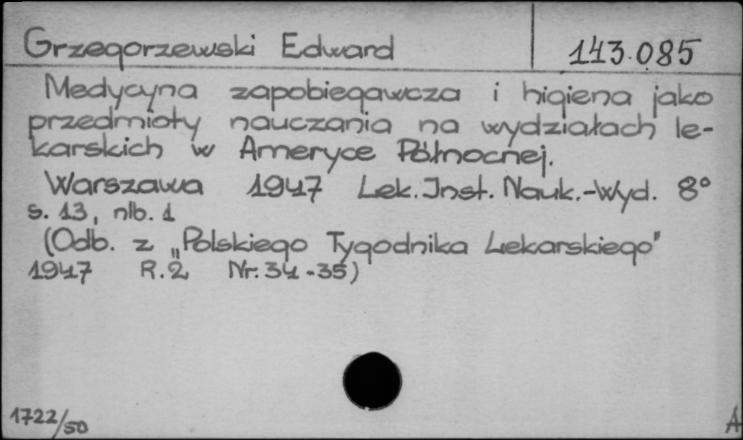 Grzegorzewski Edward
143.085
Medycyna zapobiegawcza i higiena jako
przedmioty nauczania na wydziałach le-
karskich w Ameryce Północnej.
Warszawa 1947 Lek. Inst. Nauk.-Wyd. 8°
s. 13, nlb. 1
(Odb. z „Polskiego Tygodnika Lekarskiego"
1947 R. 2 Nr. 34-35)
1722/50
A